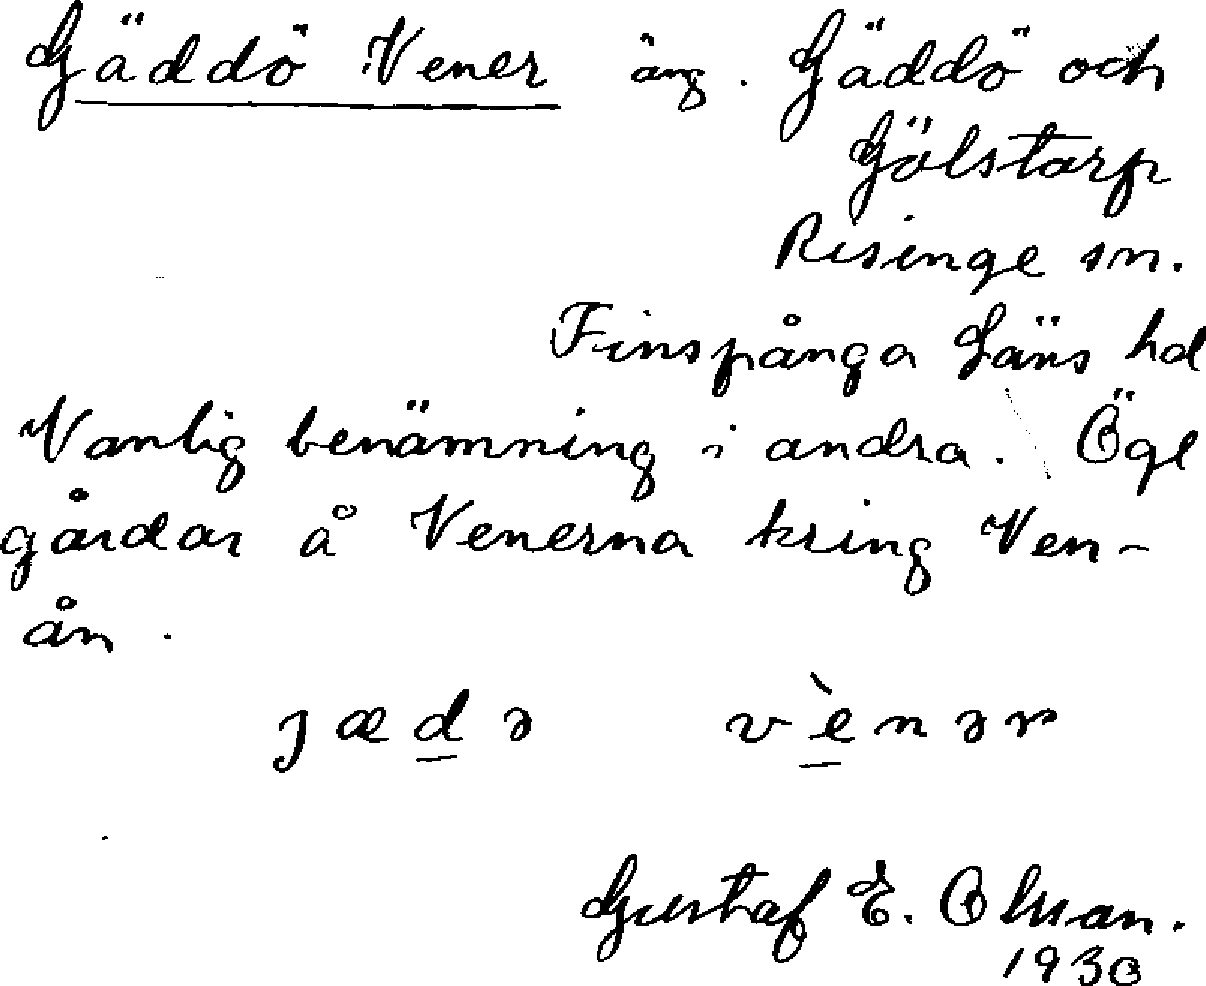 Gäddö Vener äng. Gäddö och
Gölstorp
Risinge sn.
Finspånga Läns hd
Vanlig benämning i andra. Ögl
gårdar å Venerna kring Ven-
ån.
jædə vènər
Gustaf E. Olsson.
1930